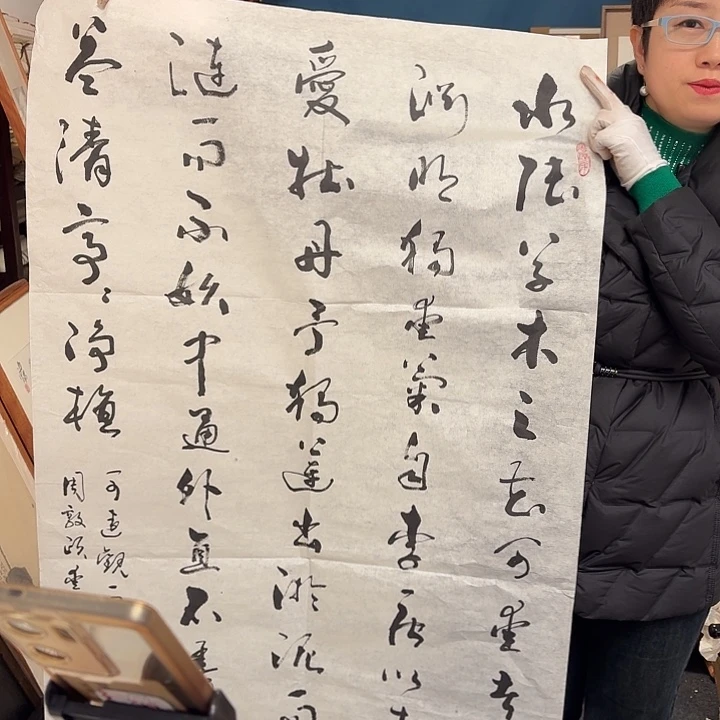 水陸草木之花可愛者
淵明獨愛菊自李唐以
愛牡丹予獨蓮出淤泥而
漣而不妖中通外直不蔓
益清亭〻淨植
可遠觀而
周敦頤愛